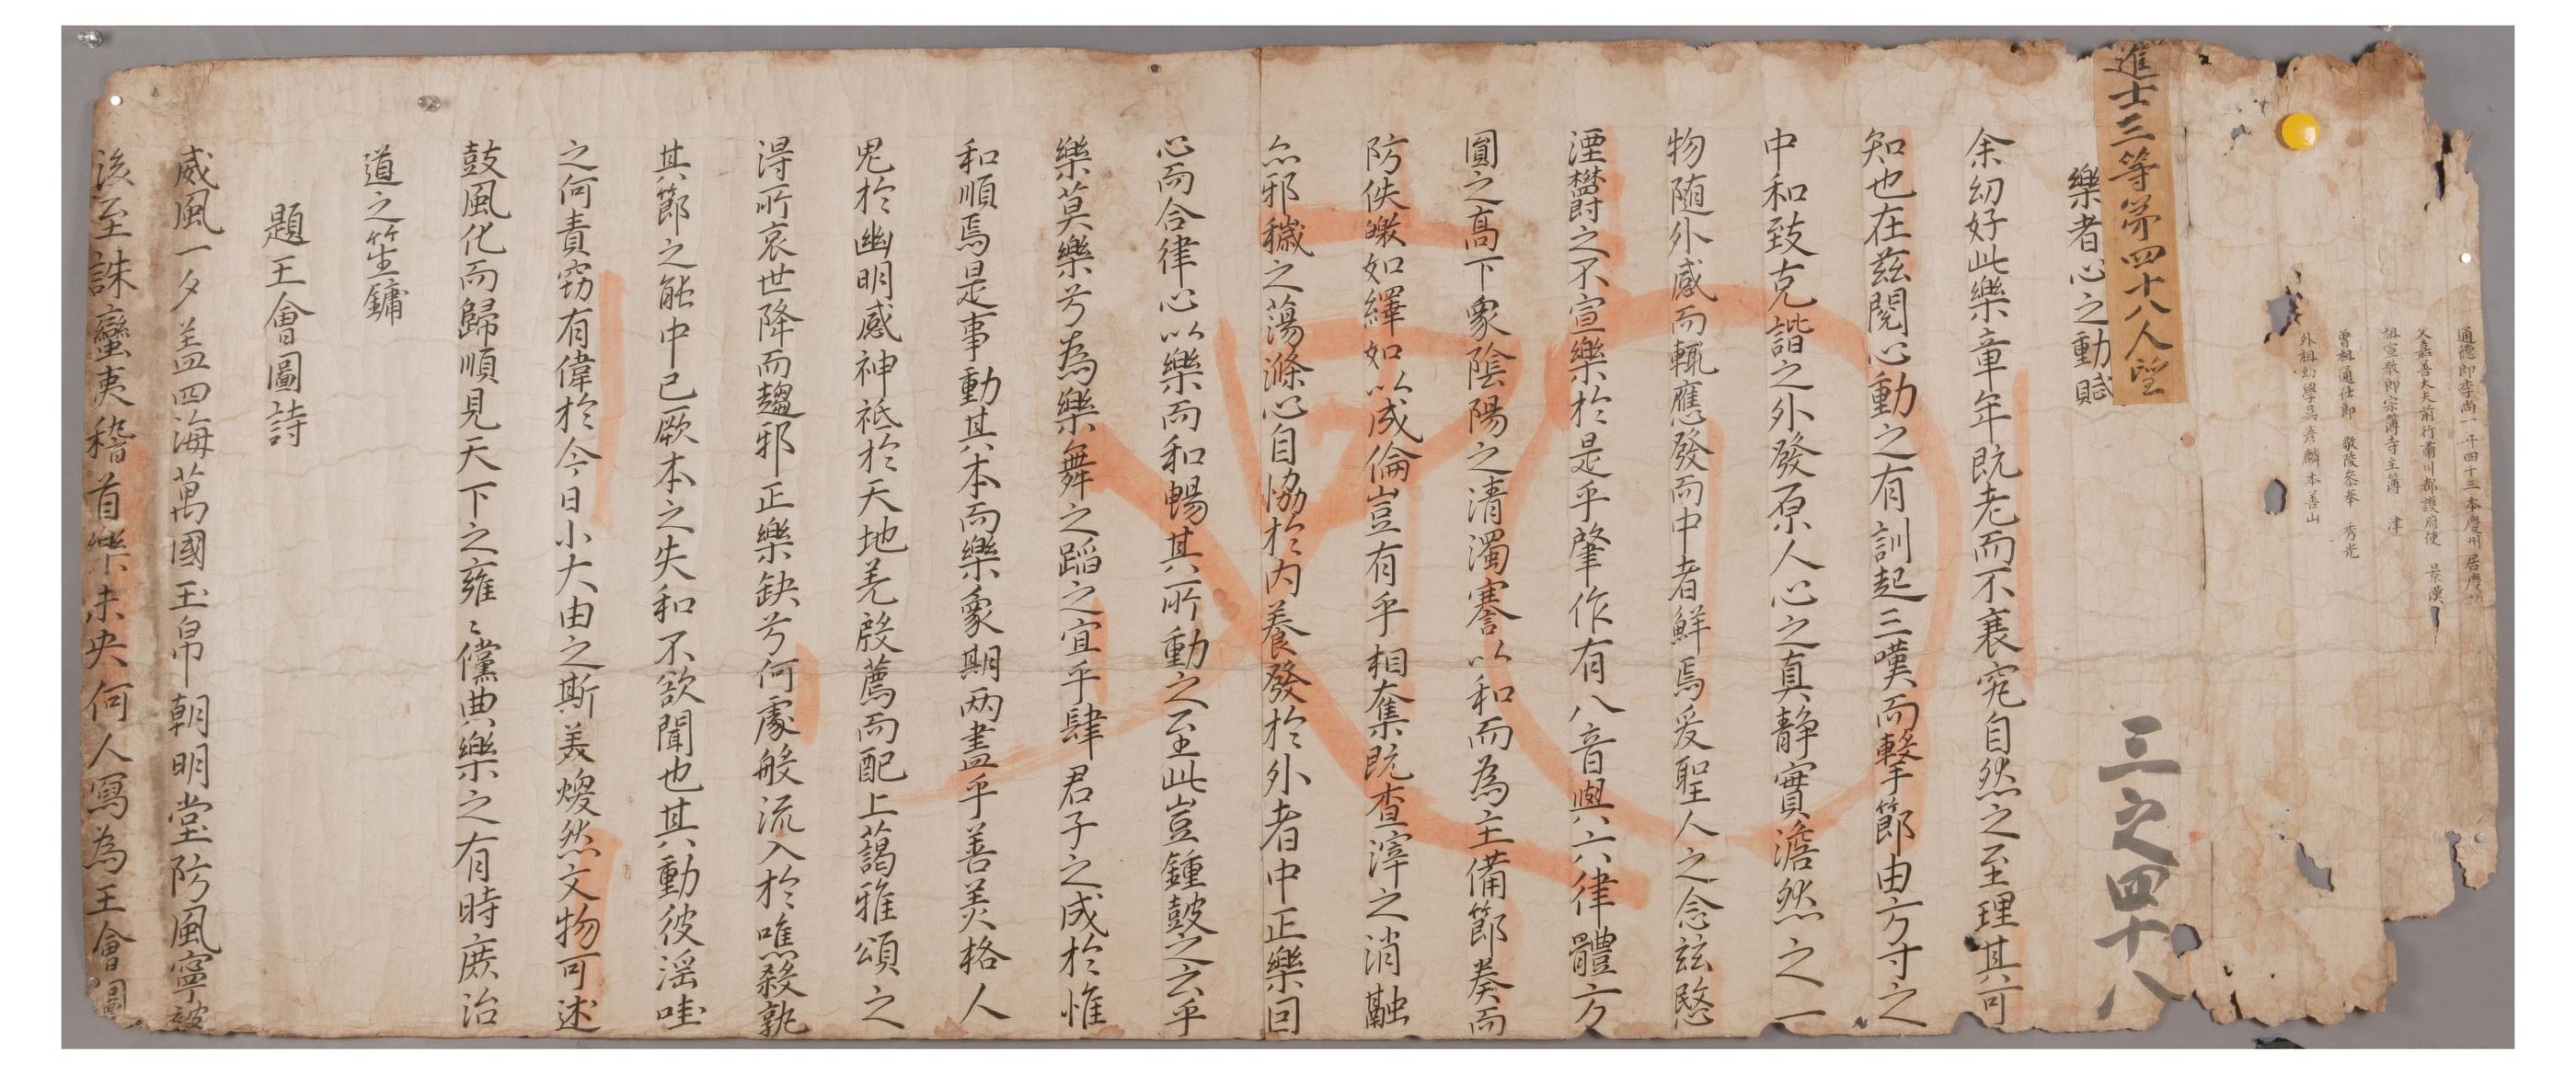 通德郎李尚一年四十三本慶州居慶州
父嘉善大夫前行肅川都護府使 景漢
祖宣敎郎宗簿寺主簿 津
曾祖通仕郎 敬陵參奉 秀光
外祖幼學吳彦麟本善山
進士三等第四十八人望
三之四十八
樂者心之動賦
余幼好此樂章年旣老而不衰究自然之至理其可
知也在玆閱心動之有訓起三嘆而擊節由方寸之
中和致克諧之外發原人心之眞静實澹然之一
物随外感而輒應發而中者鮮焉爰聖人之念玆愍
湮欝之不宣樂於是乎肇作有八音與六律體方
圓之高下象陰陽之清濁謇以和而為主備節奏而
防佚皦如繹如以成倫豈有乎相奪旣査滓之消融
亦邪穢之蕩滌心自協於內養發於外者中正樂囙
心而合律心以樂而和暢其所動之至此豈鍾皷之云乎
樂莫樂兮為樂舞之蹈之宜乎肆君子之成於惟
和順焉是事動其本而樂象期兩盡乎善美格人
鬼於幽明感神祗於天地羌殷薦而配上藹雅頌之
淂所哀世降而趨邪正樂缺兮何處般流入於噍殺孰
其節之能中已厥本之失和不欲聞也其動彼淫哇
之何責窃有偉於今日小大由之斯美煥然文物可述
鼓風化而歸順見天下之雍〻儻典樂之有時庶治
道之笙鏞
題王會圖詩
威風一夕盖四海萬國玉帛朝明堂防風寧被
後至誅蠻夷稽首樂未央何人寫為王會圖